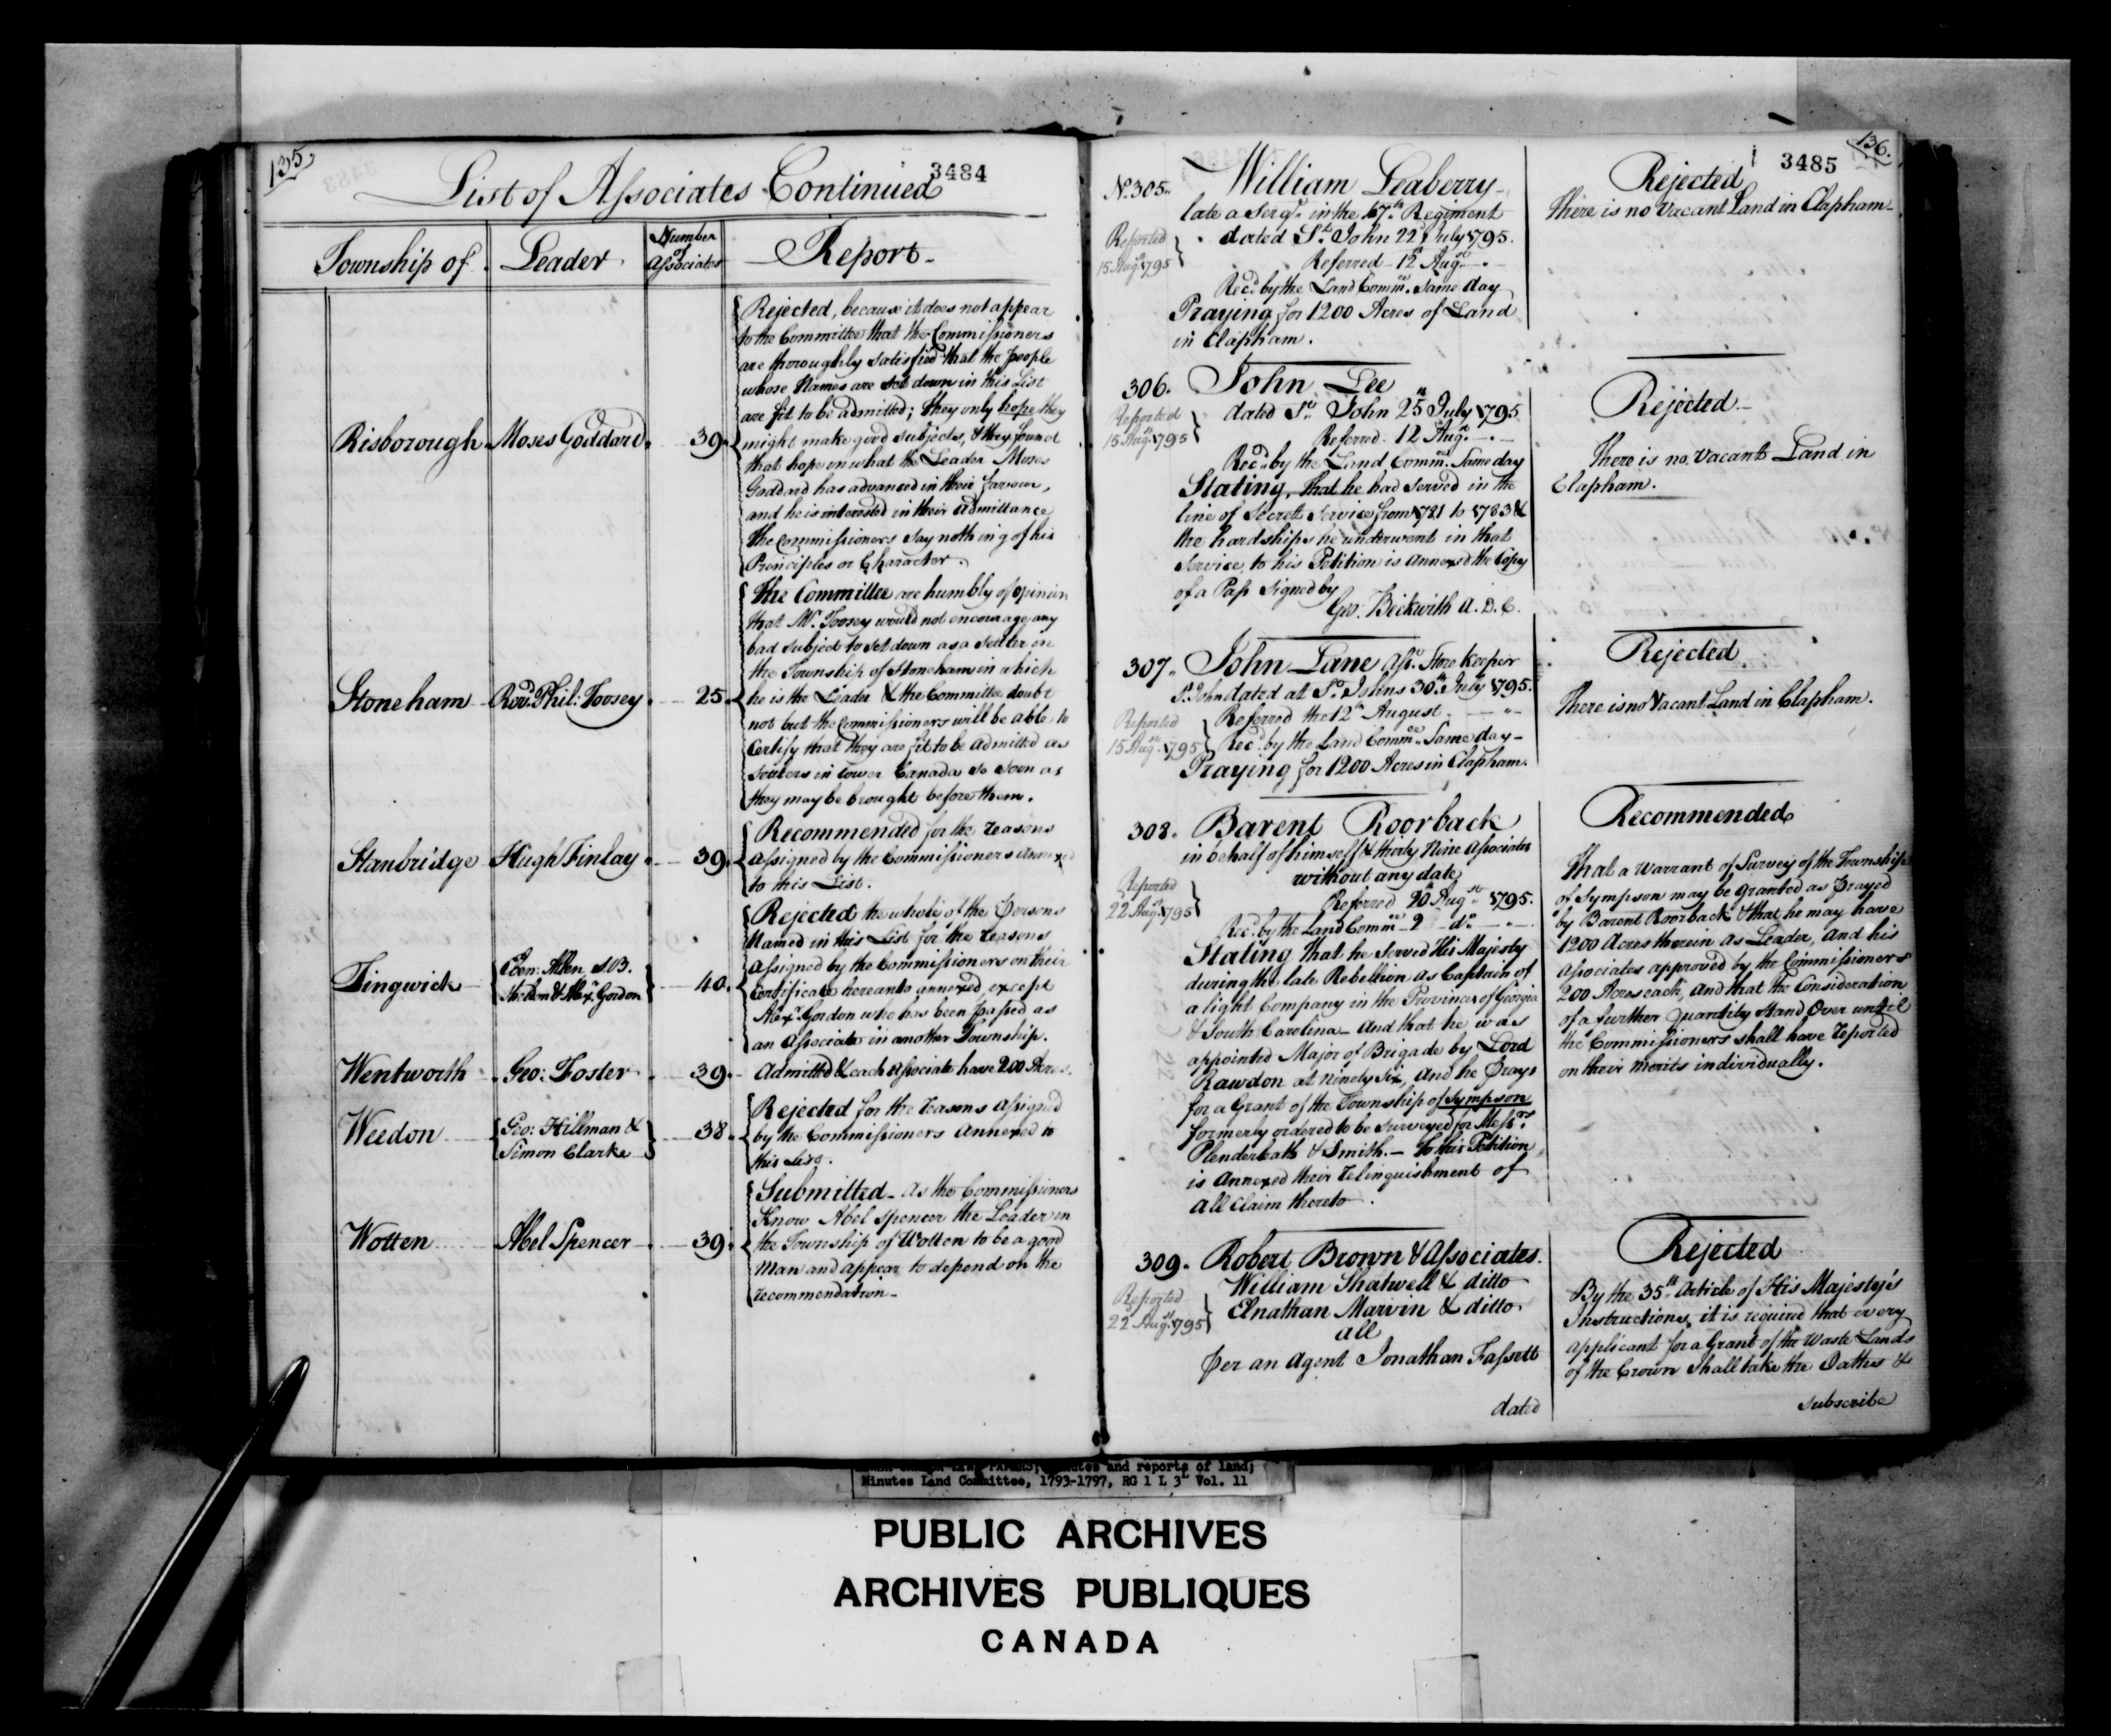 135.
3484
List of Associates Continued
Township of
Leader
Number of Associates
Report
Risborough
Moses Goddard
39.
Rejected, because it does not appear
to the Committee that the Commissioners
are thoroughly satisfied that the people
whose Names are set down in this List
are fit to be admitted; they only hope they
might make good subjects, & they found
that hope on what the Leader Moses
Goddard has advanced in their favour,
and he is interested in their admittance
the Commissioners say nothing of his
Principles or Character.
Stoneham
Revd. Phil: Toosey
25.
The Committee are humbly of opinion
that Mr. Toosey would not encourage any
bad subject to set down as a settler in
the Township of Stoneham in which
he is the Leader & the Committee doubt
not but the Commissioners will be able to
Certify that they are fit to be admitted as
settlers in Lower Canada so soon as
they may be brought before them.
Stanbridge
Hugh Finlay
39.
Recommended for the reasons
assigned by the Commissioners annexed
to this List.
Tingwick
Eben: Allen,
& Alexr. Gordon
40.
Rejected the whole of the Persons
Named in this List for the reasons
assigned by the Commissioners on their
Certificate hereunto annexed, except
Alexr. Gordon who has been passed as
an Associate in another Township.
Wentworth
Geo: Foster
39.
Admitted & each Associate have 200 Acres.
Weedon
Geo: Hillman &
Simon Clarke
38.
Rejected for the reasons assigned
by the Commissioners Annexed to
this List.
Wotten
Abel Spencer
39.
Submitted - As the Commissioners
Know Abel Spencer the Leader in
the Township of Wotten to be a good
Man and appear to depend on the
recommendation -
136.
3485
No. 305.
William Leaberry
late a Sergt. in the Regiment
dated St. John 22d July 1795.
Referred 12th Augst.
Recd. by the Land Commee. Same day
Praying for 1200 Acres of Land
in Clapham.
Reported
15 Augst. 1795
Rejected
There is no vacant Land in Clapham
306.
John Lee
dated St. John 25th July 1795
Referred 12 Augst.
Recd. by the Land Commee. Same day
Stating, that he had served in the
line of Secrett Service from 1781 to 1783 &
the hardships he underwent in that
Service, to his Petition is Annexed the Copy
of a Pass Signed by
Geo: Beckwith A. D. C.
Reported
15 Augst. 1795
Rejected
There is no vacant Land in
Clapham.
307.
John Lane Asst. Store Keeper
St. John dated at St. Johns 30th July 1795.
Referred the 12th August
Recd. by the Land Commee. Same day -
Praying for 1200 Acres in Clapham.
Reported
15 Augst. 1795
Rejected
There is no Vacant Land in Clapham.
308.
Barent Roorback
in behalf of himself & thirty Nine Associates
without any date
Referred 20 Augst. 1795.
Recd. by the Land Commee. 2 do.
Stating that he Served His Majesty
during the late Rebellion as Captain of
a light Company in the Provinces of Georgia
& South Carolina - And that he was
appointed Major of Brigade by Lord
Rawdon at Ninety Six, And he Prays
for a Grant of the Township of Sympson
formerly ordered to be Surveyed for Messrs.
Plenderleath & Smith. - To this Petition
is Annexed their relinquishment of
all Claim thereto.
Reported
22 Augst. 1795
Recommended
That a Warrant of Survey of the Township
of Sympson may be granted as Prayed
by Barent Roorback & that he may have
1200 Acres therein as Leader, And his
Associates approved by the Commissioners
200 Acres each, And that the Consideration
of a further Quantity Stand Over until
the Commissioners shall have reported
on their merits individually.
309.
Robert Brown & Associates.
William Shatwell & ditto
Elnathan Marvin & ditto
all
per an Agent Jonathan Fassett
dated
Reported
22 Augst. 1795
Rejected
By the 35th Article of His Majesty's
Instructions, it is required that every
applicant for a Grant of the Waste Lands
of the Crown Shall take the Oaths &
subscribe
Minutes and reports of land;
Minutes Land Committee, 1793-1797, RG 1 L 3L Vol. 11
PUBLIC ARCHIVES
ARCHIVES PUBLIQUES
CANADA